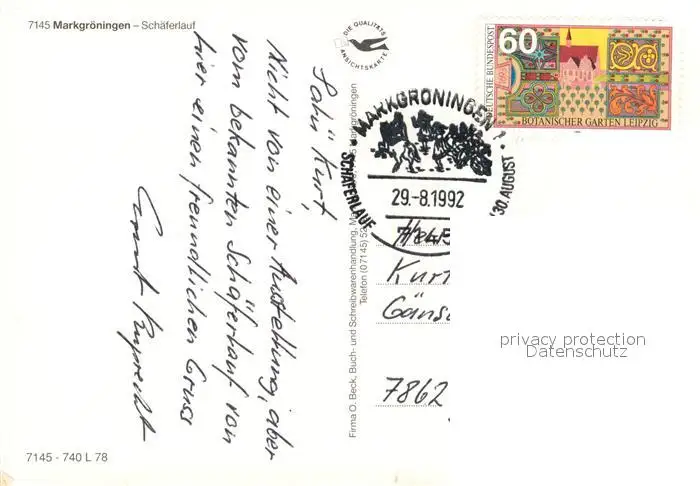 7145 Markgröningen – Schäferlauf
DIE QUALITÄTS
ANSICHTSKARTE
60
DEUTSCHE BUNDESPOST
BOTANISCHER GARTEN LEIPZIG
MARKGRÖNINGEN 1
SCHÄFERLAUF
30. AUGUST
29.-8.1992
Salü Kurt,
Nicht von einer Ausstellung, aber
vom bekannten Schäferlauf von
hier einen freundlichen Gruss
Ernst Ruprecht
Firma O. Beck, Buch- und Schreibwarenhandlung,
Telefon (07145) 52
Kurt
Gäns
7862
privacy protection
Datenschutz
7145 - 740 L 78